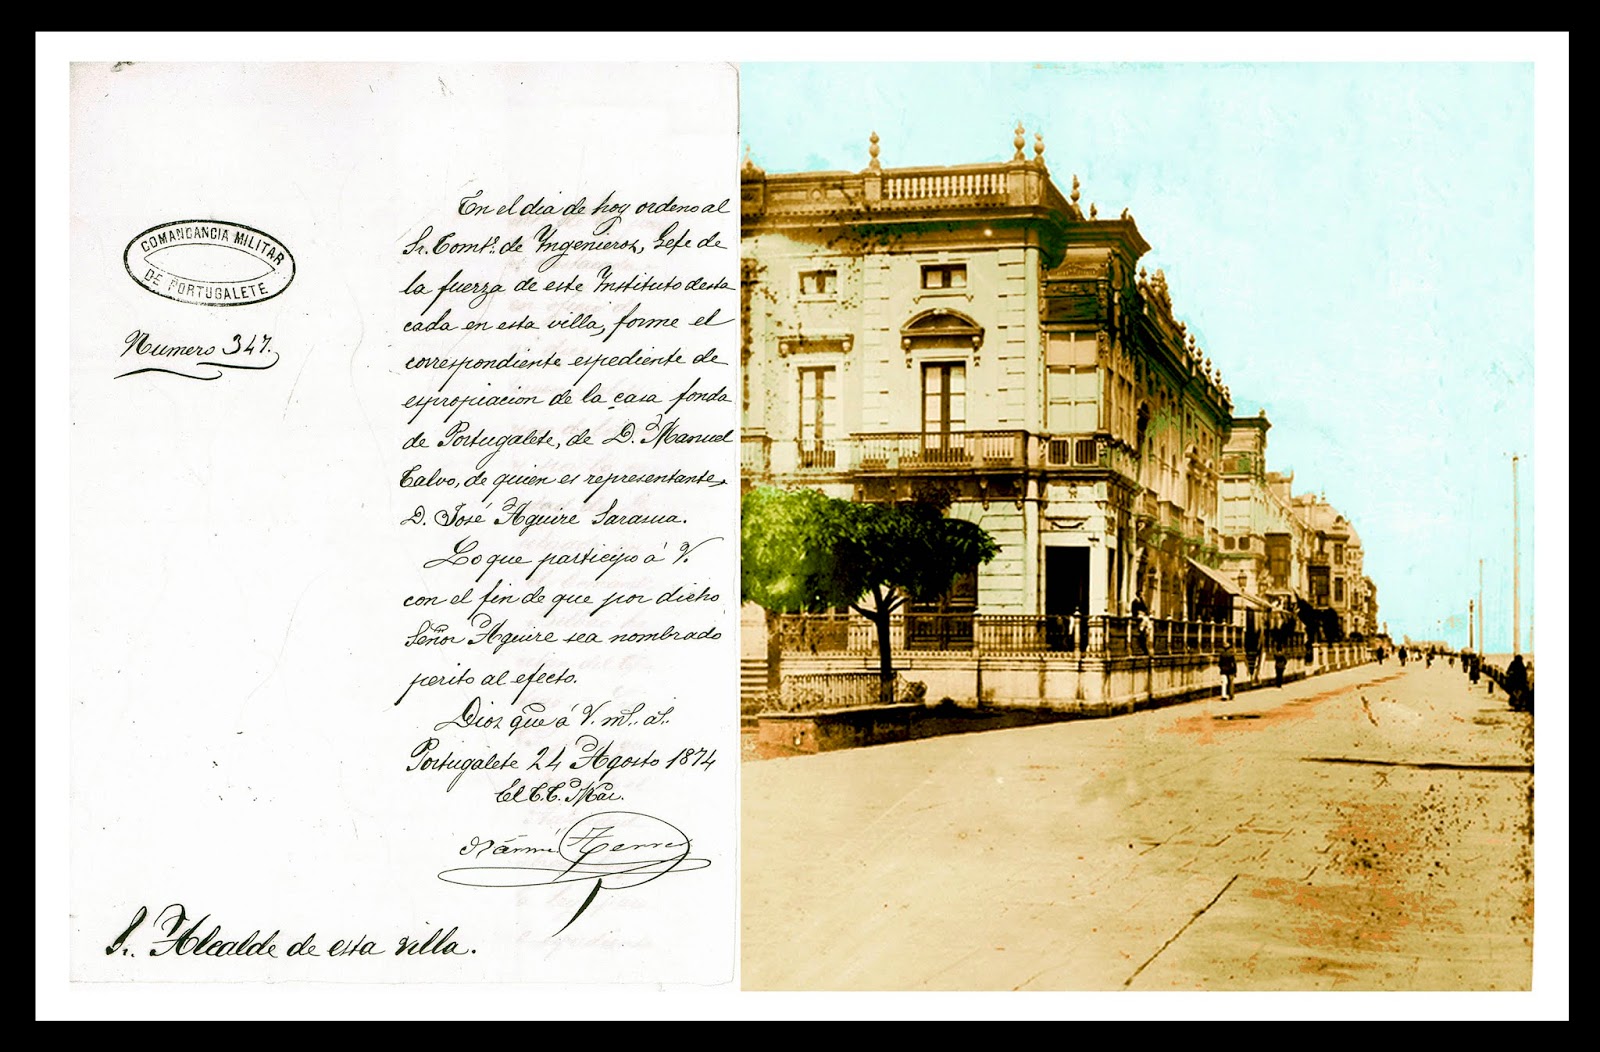 COMANDANCIA MILITAR
DE PORTUGALETE
Numero 347.
En el dia de hoy ordeno al
Sr. Comte. de Ingenieros, Gefe de
la fuerza de este Instituto desta
cada en esta villa, forme el
correspondiente espediente de
espropiacion de la casa fonda
de Portugalete, de D. Manuel
Calvo, de quien es representante,
D. José Aguire Sarasua.
Lo que participo á V.
con el fin de que por dicho
Señor Aguire sea nombrado
perito al efecto.
Dios gue á V. ms. as.
Portugalete 24 Agosto 1874
El T. C.
Sr. Alcalde de esta villa.